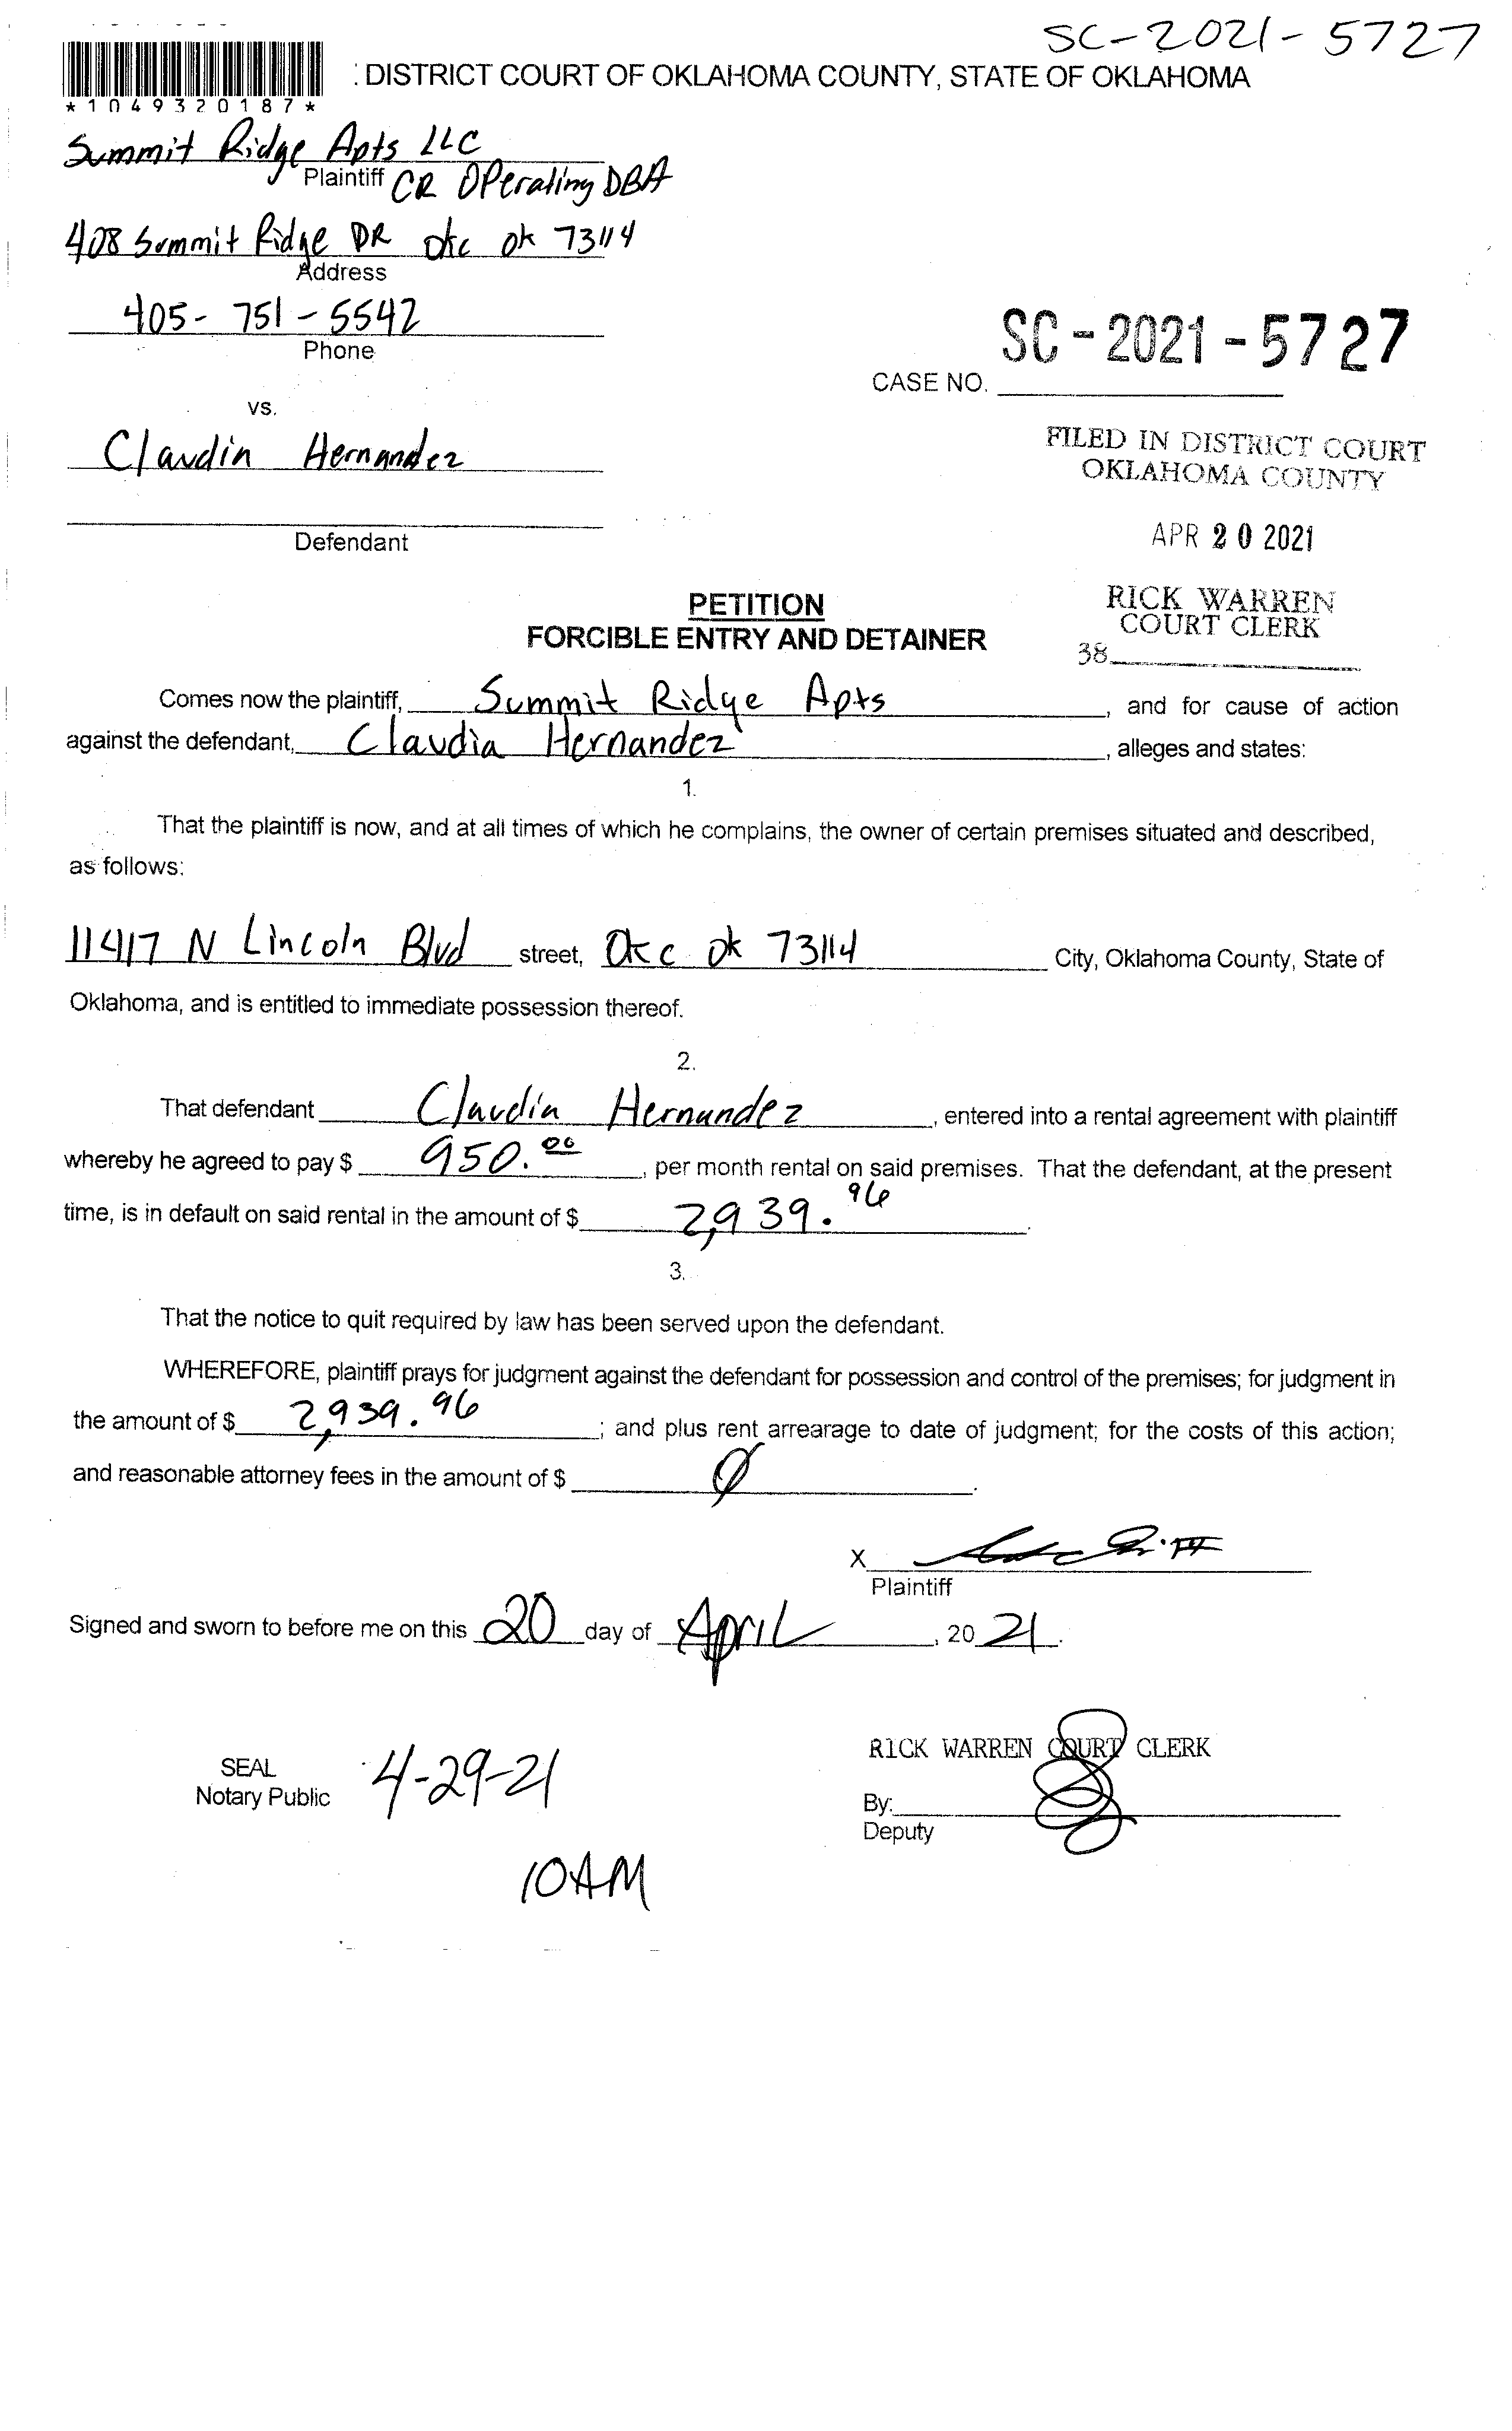 SC-2021-5727
: DISTRICT COURT OF OKLAHOMA COUNTY, STATE OF OKLAHOMA
*1049320187*
Summit Ridge Apts LLC
Plaintiff CR Operating DBA
408 Summit Ridge DR okc ok 73114
Address
405-751-5542
Phone
SC-2021-5727
CASE NO.
vs.
Claudin Hernandez
Defendant
FILED IN DISTRICT COURT
OKLAHOMA COUNTY
APR 20 2021
RICK WARREN
COURT CLERK
38
PETITION
FORCIBLE ENTRY AND DETAINER
Comes now the plaintiff, Summit Ridge Apts, and for cause of action
against the defendant, Claudia Hernandez, alleges and states:
1.
That the plaintiff is now, and at all times of which he complains, the owner of certain premises situated and described,
as follows:
11417 N Lincoln Blvd street, Okc ok 73114 City, Oklahoma County, State of
Oklahoma, and is entitled to immediate possession thereof.
2.
That defendant Claudia Hernandez, entered into a rental agreement with plaintiff
whereby he agreed to pay $ 950.00, per month rental on said premises. That the defendant, at the present
time, is in default on said rental in the amount of $ 2,939.96.
3.
That the notice to quit required by law has been served upon the defendant.
WHEREFORE, plaintiff prays for judgment against the defendant for possession and control of the premises; for judgment in
the amount of $ 2,939.96; and plus rent arrearage to date of judgment; for the costs of this action;
and reasonable attorney fees in the amount of $ Ø.
X
Plaintiff
Signed and sworn to before me on this 20 day of April, 2021.
SEAL
Notary Public
4-29-21
10AM
RICK WARREN COURT CLERK
By:
Deputy